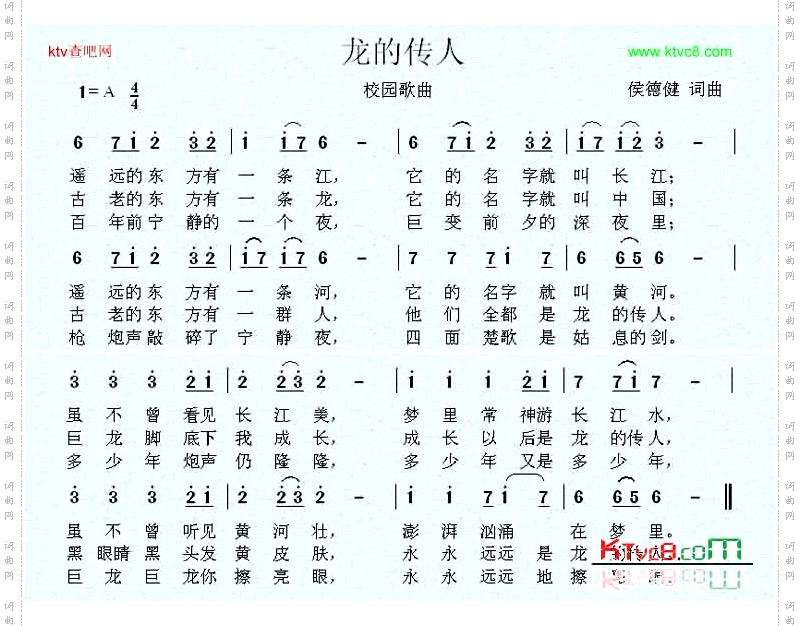 龙的传人
ktv查吧网
www.ktvc8.com
1=A 4/4
校园歌曲
侯德健 词曲
6 7 1 2 3 2 | 1 1 7 6 - | 6 7 1 2 3 2 | 1 7 1 2 3 - |
遥 远的东 方有 一 条 江, 它 的 名 字就 叫 长 江;
古 老的东 方有 一 条 龙, 它 的 名 字就 叫 中 国;
百 年前宁 静的 一 个 夜, 巨 变 前 夕的 深 夜 里;
6 7 1 2 3 2 | 1 7 1 7 6 - | 7 7 7 1 7 | 6 6 5 6 - |
遥 远的东 方有 一 条 河, 它 的 名字 就 叫 黄 河。
古 老的东 方有 一 群 人, 他 们 全都 是 龙 的传人。
枪 炮声敲 碎了 宁 静 夜, 四 面 楚歌 是 姑 息的剑。
3 3 3 2 1 | 2 2 3 2 - | 1 1 1 2 1 | 7 7 1 7 - |
虽 不 曾 看见 长 江 美, 梦 里 常 神游 长 江 水,
巨 龙 脚 底下 我 成 长, 成 长 以 后是 龙 的传人,
多 少 年 炮声 仍 隆 隆, 多 少 年 又是 多 少 年,
3 3 3 2 1 | 2 2 3 2 - | 1 1 7 1 7 | 6 6 5 6 - ‖
虽 不 曾 听见 黄 河 壮, 澎 湃 汹涌 在 梦 里。
黑 眼睛 黑 头发 黄 皮 肤, 永 永 远远 是 龙
巨 龙 巨 龙你 擦 亮 眼, 永 永 远远 地 擦
KTvc8.com